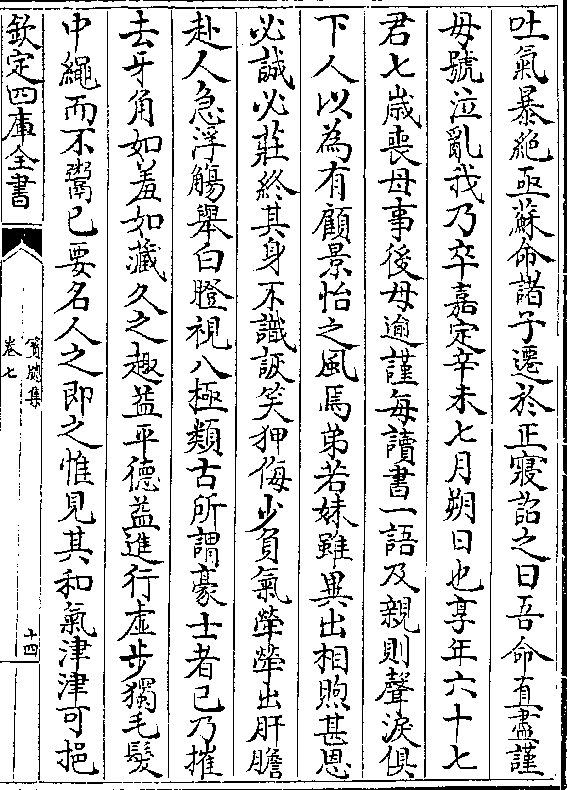 吐氣暴絶亟蘇命諸子遷於正寢詔之曰吾命直盡謹
毋號泣亂我乃卒嘉定辛未七月朔日也享年六十七
君七歳喪母事後母逾謹每讀書一語及親則聲淚俱
下人以為有顧景怡之風焉弟若妹雖異出相煦甚恩
必誠必莊終其身不識詼笑狎侮少負氣犖犖出肝膽
赴人急浮觴舉白瞪視八極類古所謂豪士者已乃摧
去牙角如羞如藏久之趣益平德益進行虚步獨毛髮
中繩而不鬻已要名人之即之惟見其和氣津津可挹
欽定四庫全書
卷七
十四